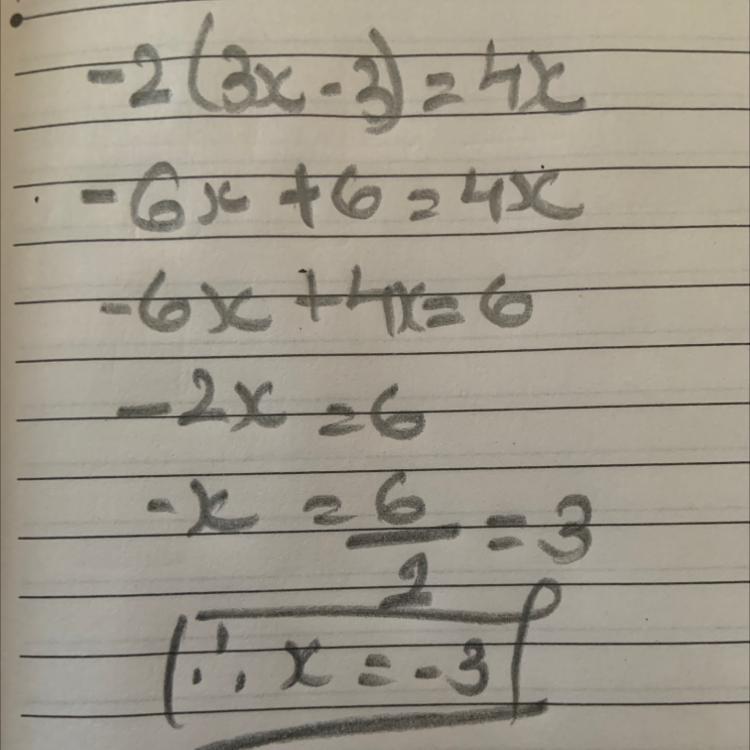 -2(3x-3)=4x
-6x+6=4x
-6x+4x=6
-2x=6
-x=6/2=3
∴ x=-3